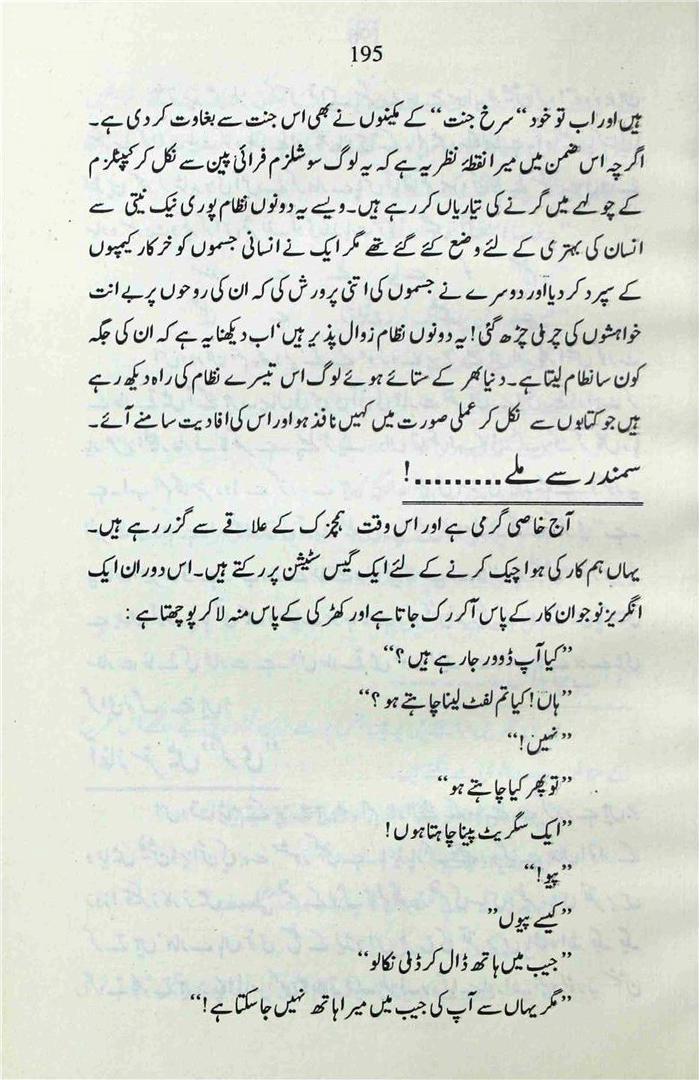 195
ہیں اور اب تو خود “سرخ جنت” کے مکینوں نے بھی اس جنت سے بغاوت کر دی ہے۔
اگرچہ اس ضمن میں میرا نقطۂ نظر یہ ہے کہ یہ لوگ سوشلزم فرائی پین سے نکل کر کیپٹلزم
کے چولہے میں گرنے کی تیاریاں کر رہے ہیں۔ ویسے یہ دونوں نظام پوری نیک نیتی سے
انسان کی بہتری کے لئے وضع کئے گئے تھے مگر ایک نے انسانی جسموں کو خرکار کیمپوں
کے سپرد کر دیا اور دوسرے نے جسموں کی اتنی پرورش کی کہ ان کی روحوں پر بے انت
خواہشوں کی چربی چڑھ گئی! یہ دونوں نظام زوال پذیر ہیں‘ اب دیکھنا یہ ہے کہ ان کی جگہ
کون سا نظام لیتا ہے۔ دنیا بھر کے ستائے ہوئے لوگ اس تیسرے نظام کی راہ دیکھ رہے
ہیں جو کتابوں سے نکل کر عملی صورت میں کہیں نافذ ہو اور اس کی افادیت سامنے آئے۔
سمندر سے ملے.........!
آج خاصی گرمی ہے اور اس وقت ہمچزک کے علاقے سے گزر رہے ہیں۔
یہاں ہم کار کی ہوا چیک کرنے کے لئے ایک گیس سٹیشن پر رکتے ہیں۔ اس دوران ایک
انگریز نوجوان کار کے پاس آ کر رک جاتا ہے اور کھڑکی کے پاس منہ لا کر پوچھتا ہے :
”کیا آپ ڈوور جا رہے ہیں ؟“
”ہاں! کیا تم لفٹ لینا چاہتے ہو ؟“
”نہیں!“
”تو پھر کیا چاہتے ہو“
”ایک سگریٹ پینا چاہتا ہوں!
”پیو!“
”کیسے پیوں”
”جیب میں ہاتھ ڈال کر ڈبی نکالو“
”مگر یہاں سے آپ کی جیب میں میرا ہاتھ نہیں جا سکتا ہے!“